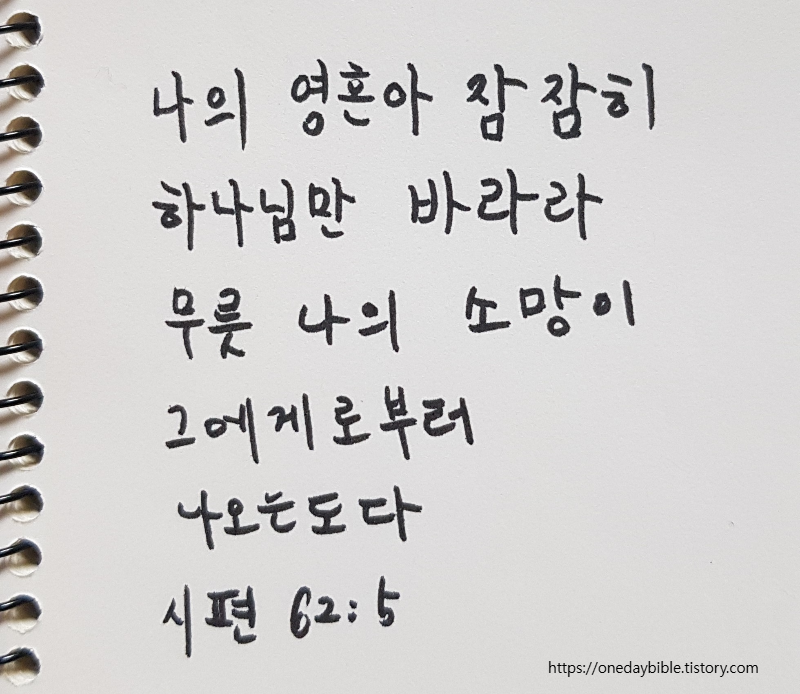 나의 영혼아 잠잠히
하나님만 바라라
무릇 나의 소망이
그에게로부터
나오는도다
시편 62:5
https://onedaybible.tistory.com